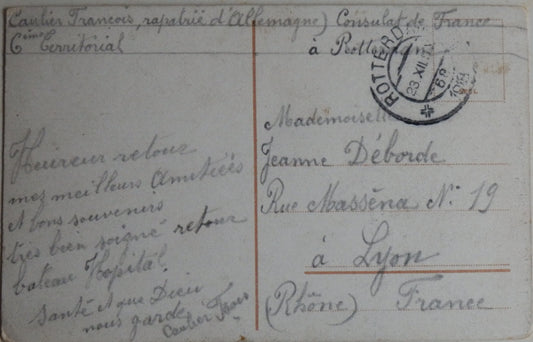 Caulier Francois, rapatrié d'Allemagne) Consulat de France
6ème Territorial
à Rotterdam
ROTTERDAM
23.XII.
1918
Mademoiselle
Jeanne Déborde
Rue Masséna N: 19
à Lyon
(Rhône) France
Heureux retour
mes meilleurs Amitiées
et bons souvenirs
très bien soigné retour
bateau Hopital
Santé et que Dieu
nous garde
Caulier Frois